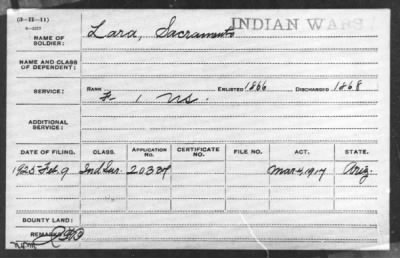 (3-II-11)
INDIAN WARS
NAME OF SOLDIER: Lara, Sacramento
NAME AND CLASS OF DEPENDENT:
SERVICE: RANK ENLISTED 1866 DISCHARGED 1868
F 1
ADDITIONAL SERVICE:
DATE OF FILING. CLASS. APPLICATION No. CERTIFICATE No. FILE NO. ACT. STATE.
1925 Feb. 9 Ind Sur. Mar 4, 1917 Ariz.
BOUNTY LAND:
REMARKS